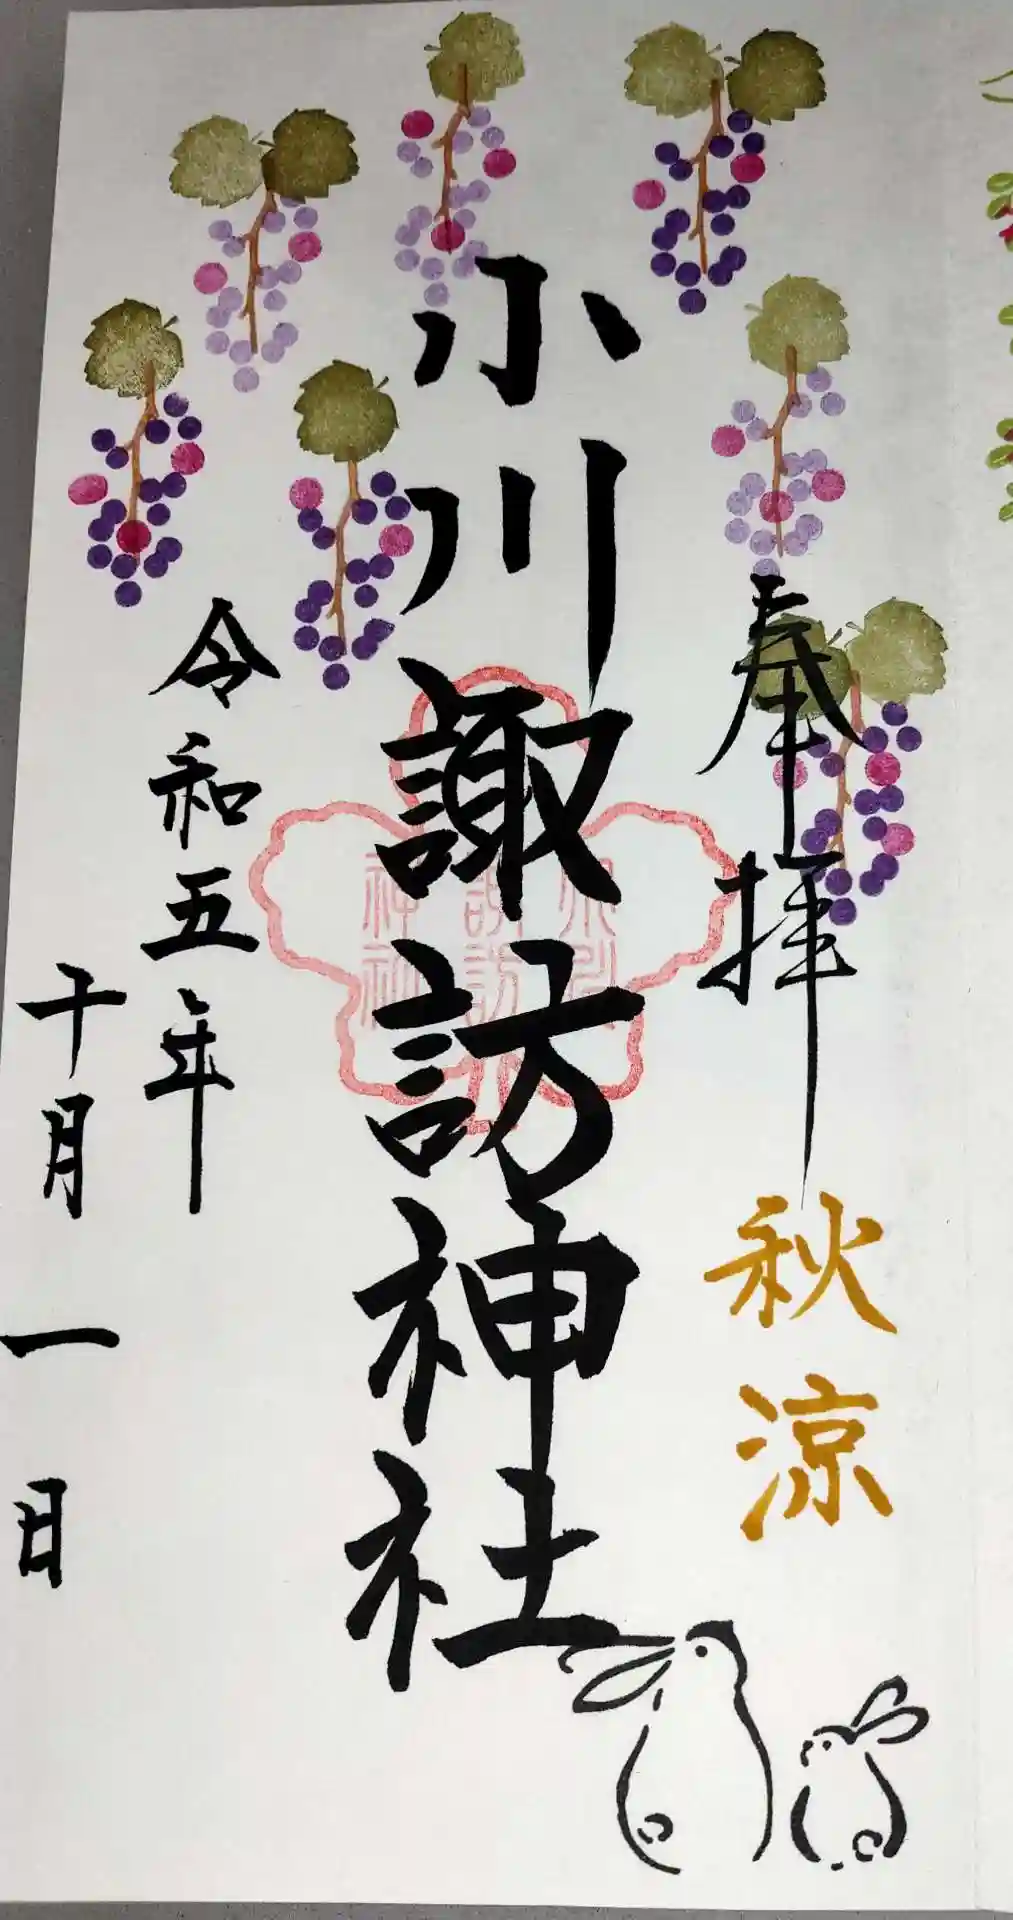 奉拝
秋涼
小川諏訪神社
小川
諏訪
神社
令和五年
十月一日